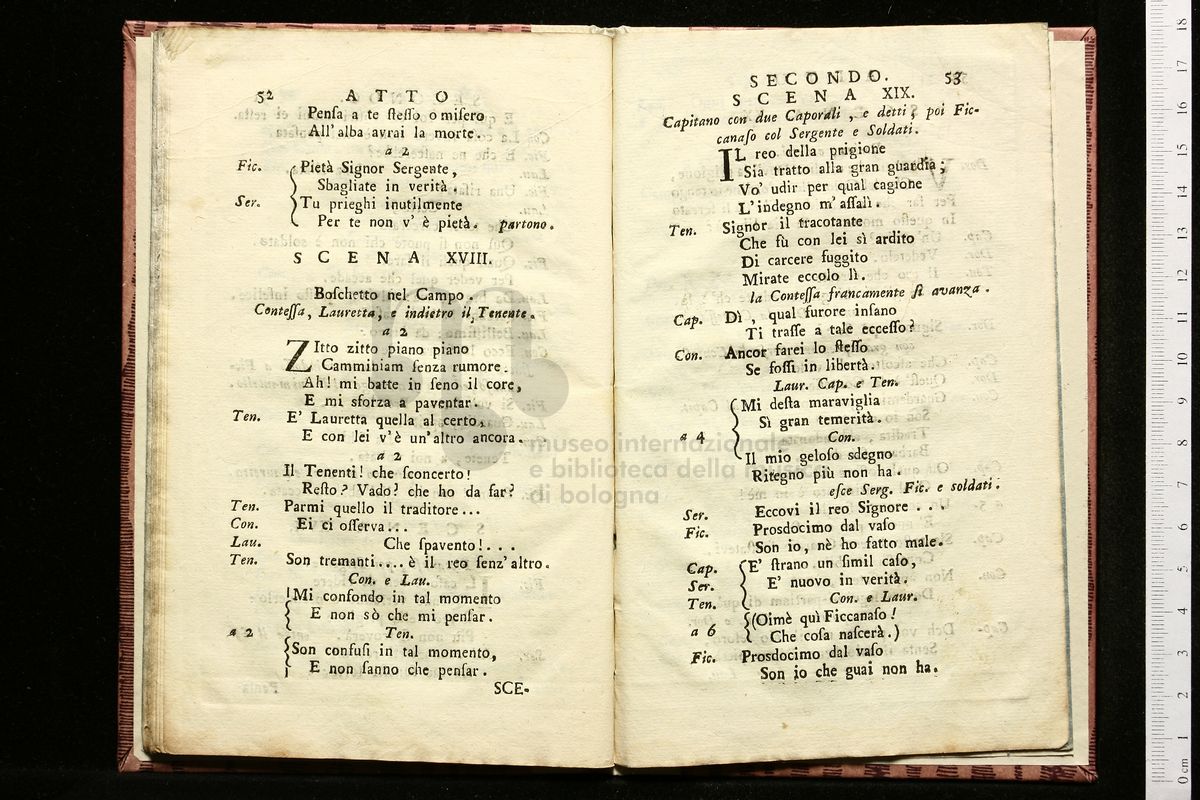 52 ATTO
Penſa a te ſteſſo o miſero
All' alba avrai la morte.
a 2
Fic. Pietà Signor Sergente,
Sbagliate in verità.
Ser. Tu prieghi inutilmente
Per te non v' è pietà. partono.
SCENA XVIII.
Boſchetto nel Campo.
Conteſſa, Lauretta, e indietro il Tenente.
a 2
ZItto zitto piano piano
Camminiam ſenza rumore.
Ah! mi batte in ſeno il core,
E mi sforza a paventar.
Ten. E' Lauretta quella al certo,
E con lei v'è un'altro ancora.
a 2
Il Tenenti! che ſconcerto!
Reſto? Vado? che ho da far?
Ten. Parmi quello il traditore...
Con. Ei ci oſſerva...
Lau. Che ſpavento!...
Ten. Son tremanti.... è il reo ſenz'altro.
Con. e Lau.
Mi confondo in tal momento
E non sò che mi penſar.
a 2 Ten.
Son confuſi in tal momento,
E non ſanno che penſar.
SCE-
SECONDO. 53
SCENA XIX.
Capitano con due Caporali, e detti; poi Fic-
canaſo col Sergente e Soldati.
IL reo della prigione
Sia tratto alla gran guardia;
Vo' udir per qual cagione
L'indegno m'aſſalì.
Ten. Signor il tracotante
Che fù con lei sì ardito
Di carcere fuggito
Mirate eccolo lì.
la Conteſſa francamente ſi avanza.
Cap. Dì, qual furore inſano
Ti traſſe a tale ecceſſo?
Con. Ancor farei lo ſteſſo
Se foſſi in libertà.
Laur. Cap. e Ten.
Mi deſta maraviglia
Sì gran temerità.
a 4 Con.
Il mio geloſo sdegno
Ritegno più non ha.
eſce Serg. Fic. e ſoldati.
Ser. Eccovi il reo Signore...
Fic. Prosdocimo dal vaſo
Son io, nè ho fatto male.
Cap. E' ſtrano un ſimil caſo,
Ser. E' nuovo in verità.
Ten. Con. e Laur.
(Oimè quì Ficcanaſo!
a 6 Che coſa naſcerà.)
Fic. Prosdocimo dal vaſo
Son io che guai non ha.
museo internazionale
e biblioteca della musica
di bologna
0 cm 1 2 3 4 5 6 7 8 9 10 11 12 13 14 15 16 17 18